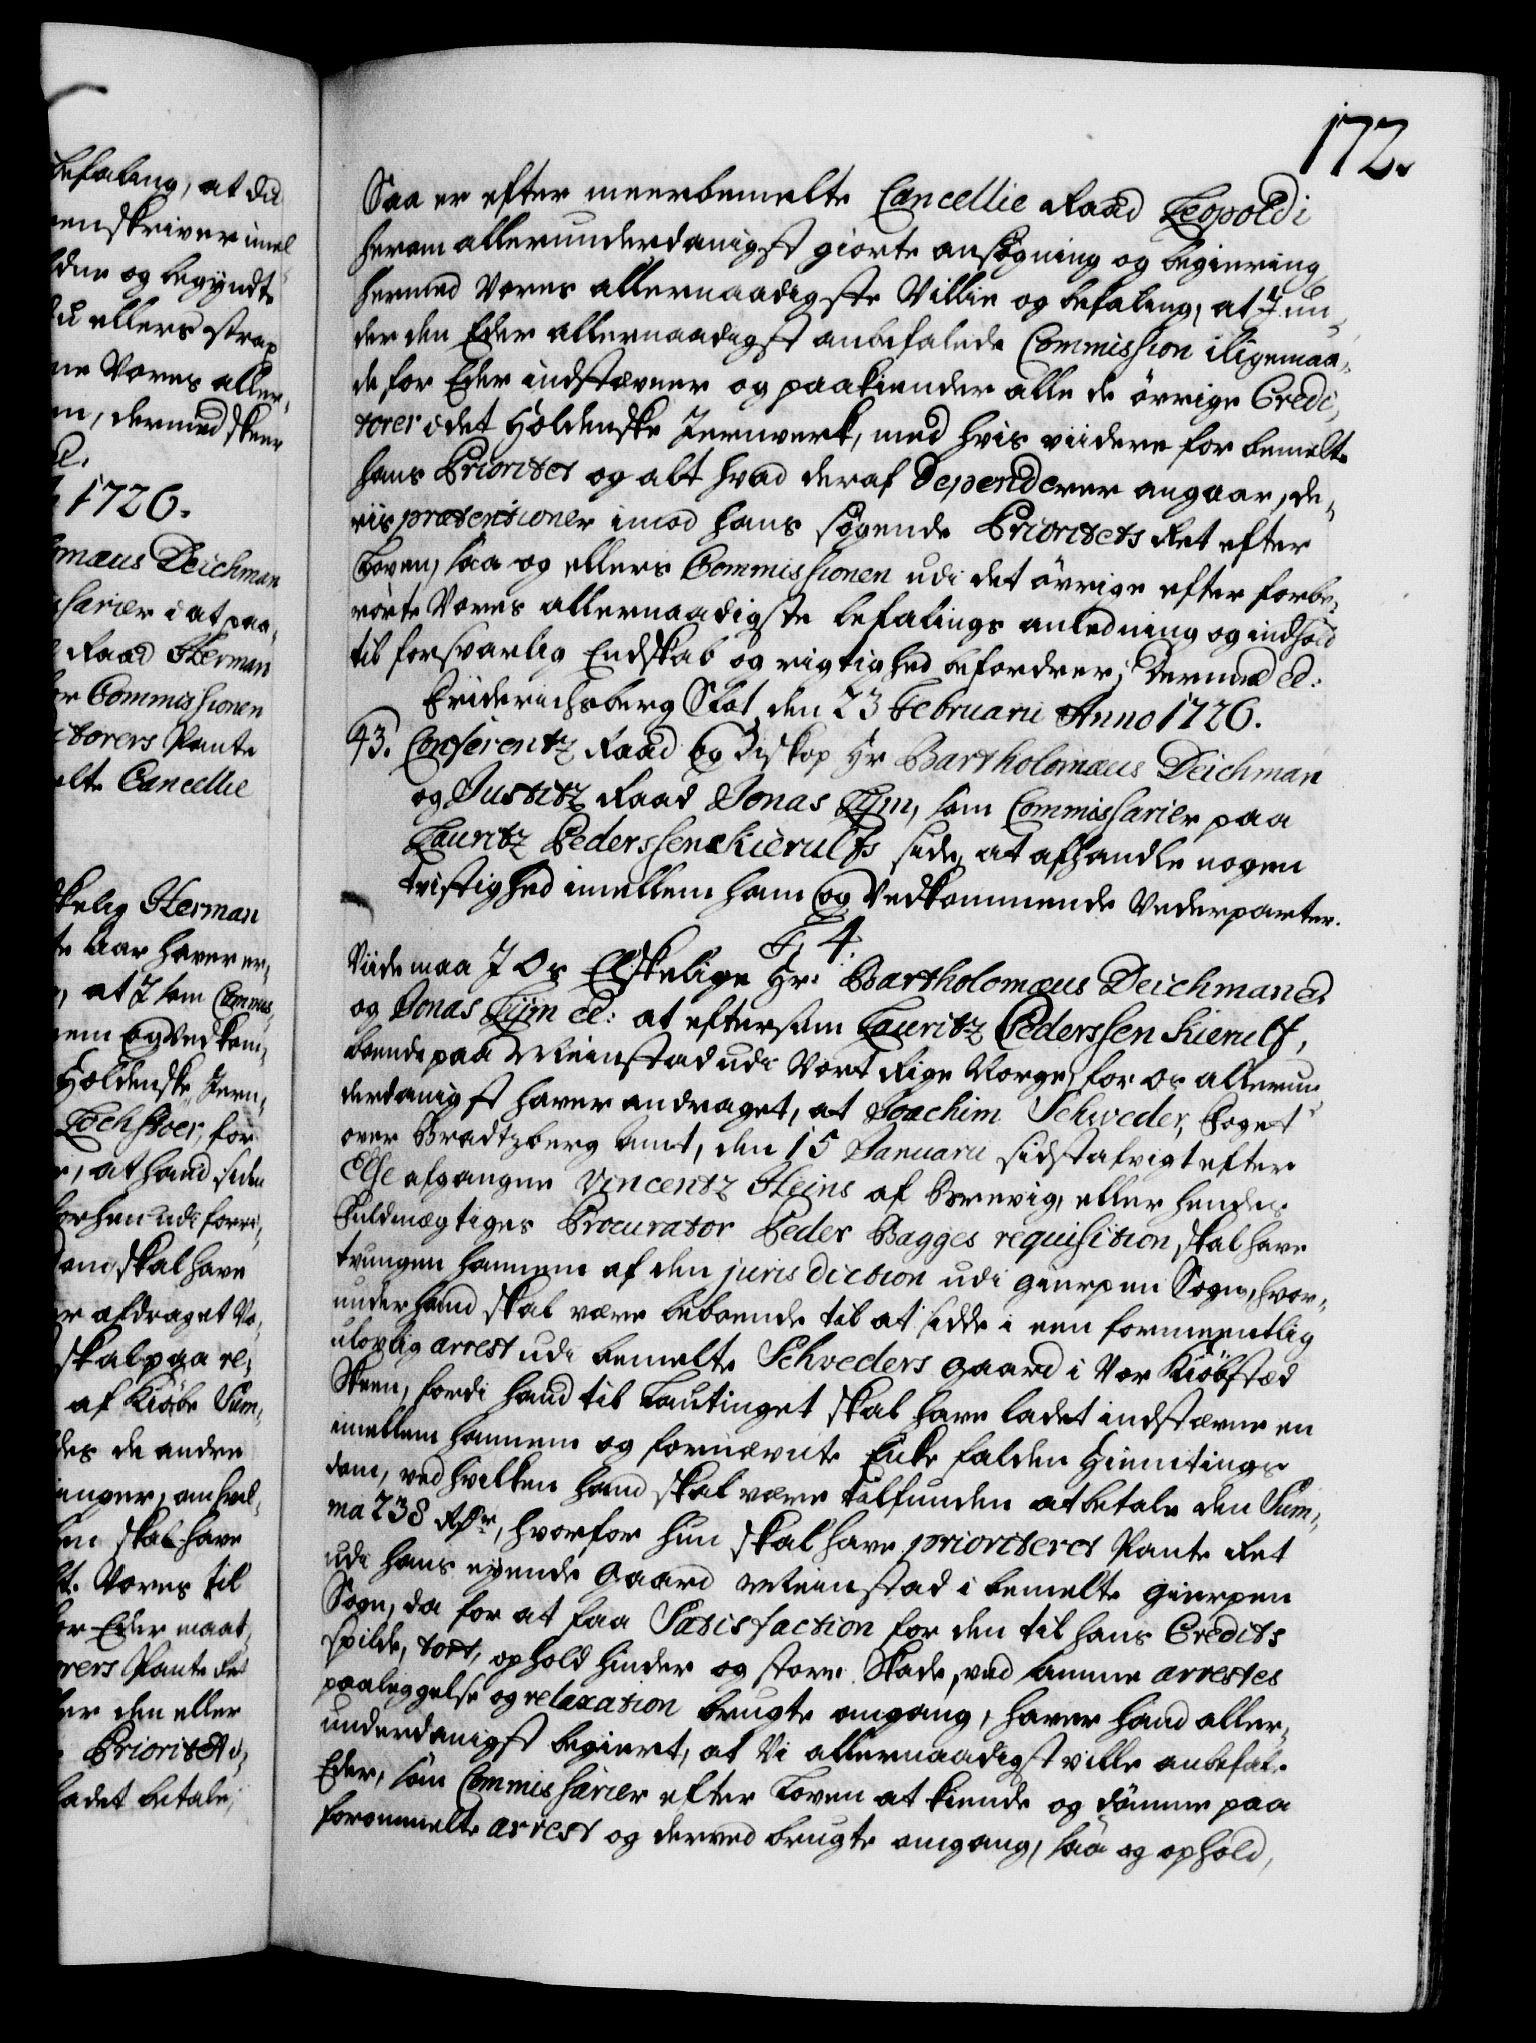 172.
Saa er efter meerbemelte Cancellie Raad Leopoldi
herom allerunderdanigst giorte ansøgning og begiering
hermed Vores allernaadigste Villie og befaling, at I un¬
der den Eder allernaadigst anbefalede Commission iligemaa¬
de for Eder indstævner og paakiender alle de øvrige Credi¬
torer i det Holdenske Jernverk, med hvis viidere for bemelte
hans Prioritet og alt hvad deraf Dependerer angaar, de¬
ris prætentioner imod hans søgende Prioritets Ret efter
Loven, saa og ellers Commissionen udi det øvrige efter forbe¬
rørte Vores allernaadigste befalings anledning og indhold
til forsvarlig Endskab og rigtighed befordrer; Dermed etc:
Friderichsberg Slot den 23 Februarii Anno 1726.
43. Conferentz Raad og Biskop Hr Bartholomæus Deichman
og Justitz Raad Jonas Lÿm, som Commissarier paa
Lauritz Pederssen Kierulfs side, at afhandle nogen
tvistighed imellem ham og Vedkommende Vederparter.
F. 4.
Viide maa I Os Elskelige Hr. Bartholomæus Deichman etc.
og Jonas Lÿm etc: at eftersom Lauritz Pederssen Kierulf,
boende paa Meinstad udi Vort Rige Norge, for os allerun¬
derdanigst haver andraget, at Joachim Schweder, Foget
over Bradtzberg Amt, den 15 Januarii sidst afvigt efter
Else afgangne Vincentz Heins af Brevig, eller hendes
Fuldmægtiges Procurator Peder Bagges requisition, skal have
tvungen hannem af den jurisdiction udi Gierpen Sogn, hvor¬
under hand skal være beboende til at sidde i een formeentlig
ulovlig arrest udi bemelte Schveders gaard i Vor Kiøbstæd
Skeen, fordi hand til Lautinget skal have ladet indstævne en
imellem hannem og fornævnte Enke falden Hiemtings
dom, ved hvilken hand skal være tilfunden at betale den Sum¬
ma 238 Rdr, hvorfor hun skal have prioriteret Pante Ret
udi hans eyende Gaard Meinstad i bemelte Gierpen
Sogn, da for at faa Satisfaction for den til hans Credits
spilde, tort, ophold hinder og store Skade, ved samme arrestes
paaleggelse og relaxation brugte omgang, haver hand aller¬
underdanigst begiert, at Vi allernaadigst ville anbefale
Eder, som Commissarier efter Loven at kiende og dømme paa
forommelte arrest og derved brugte omgang, saa og ophold,